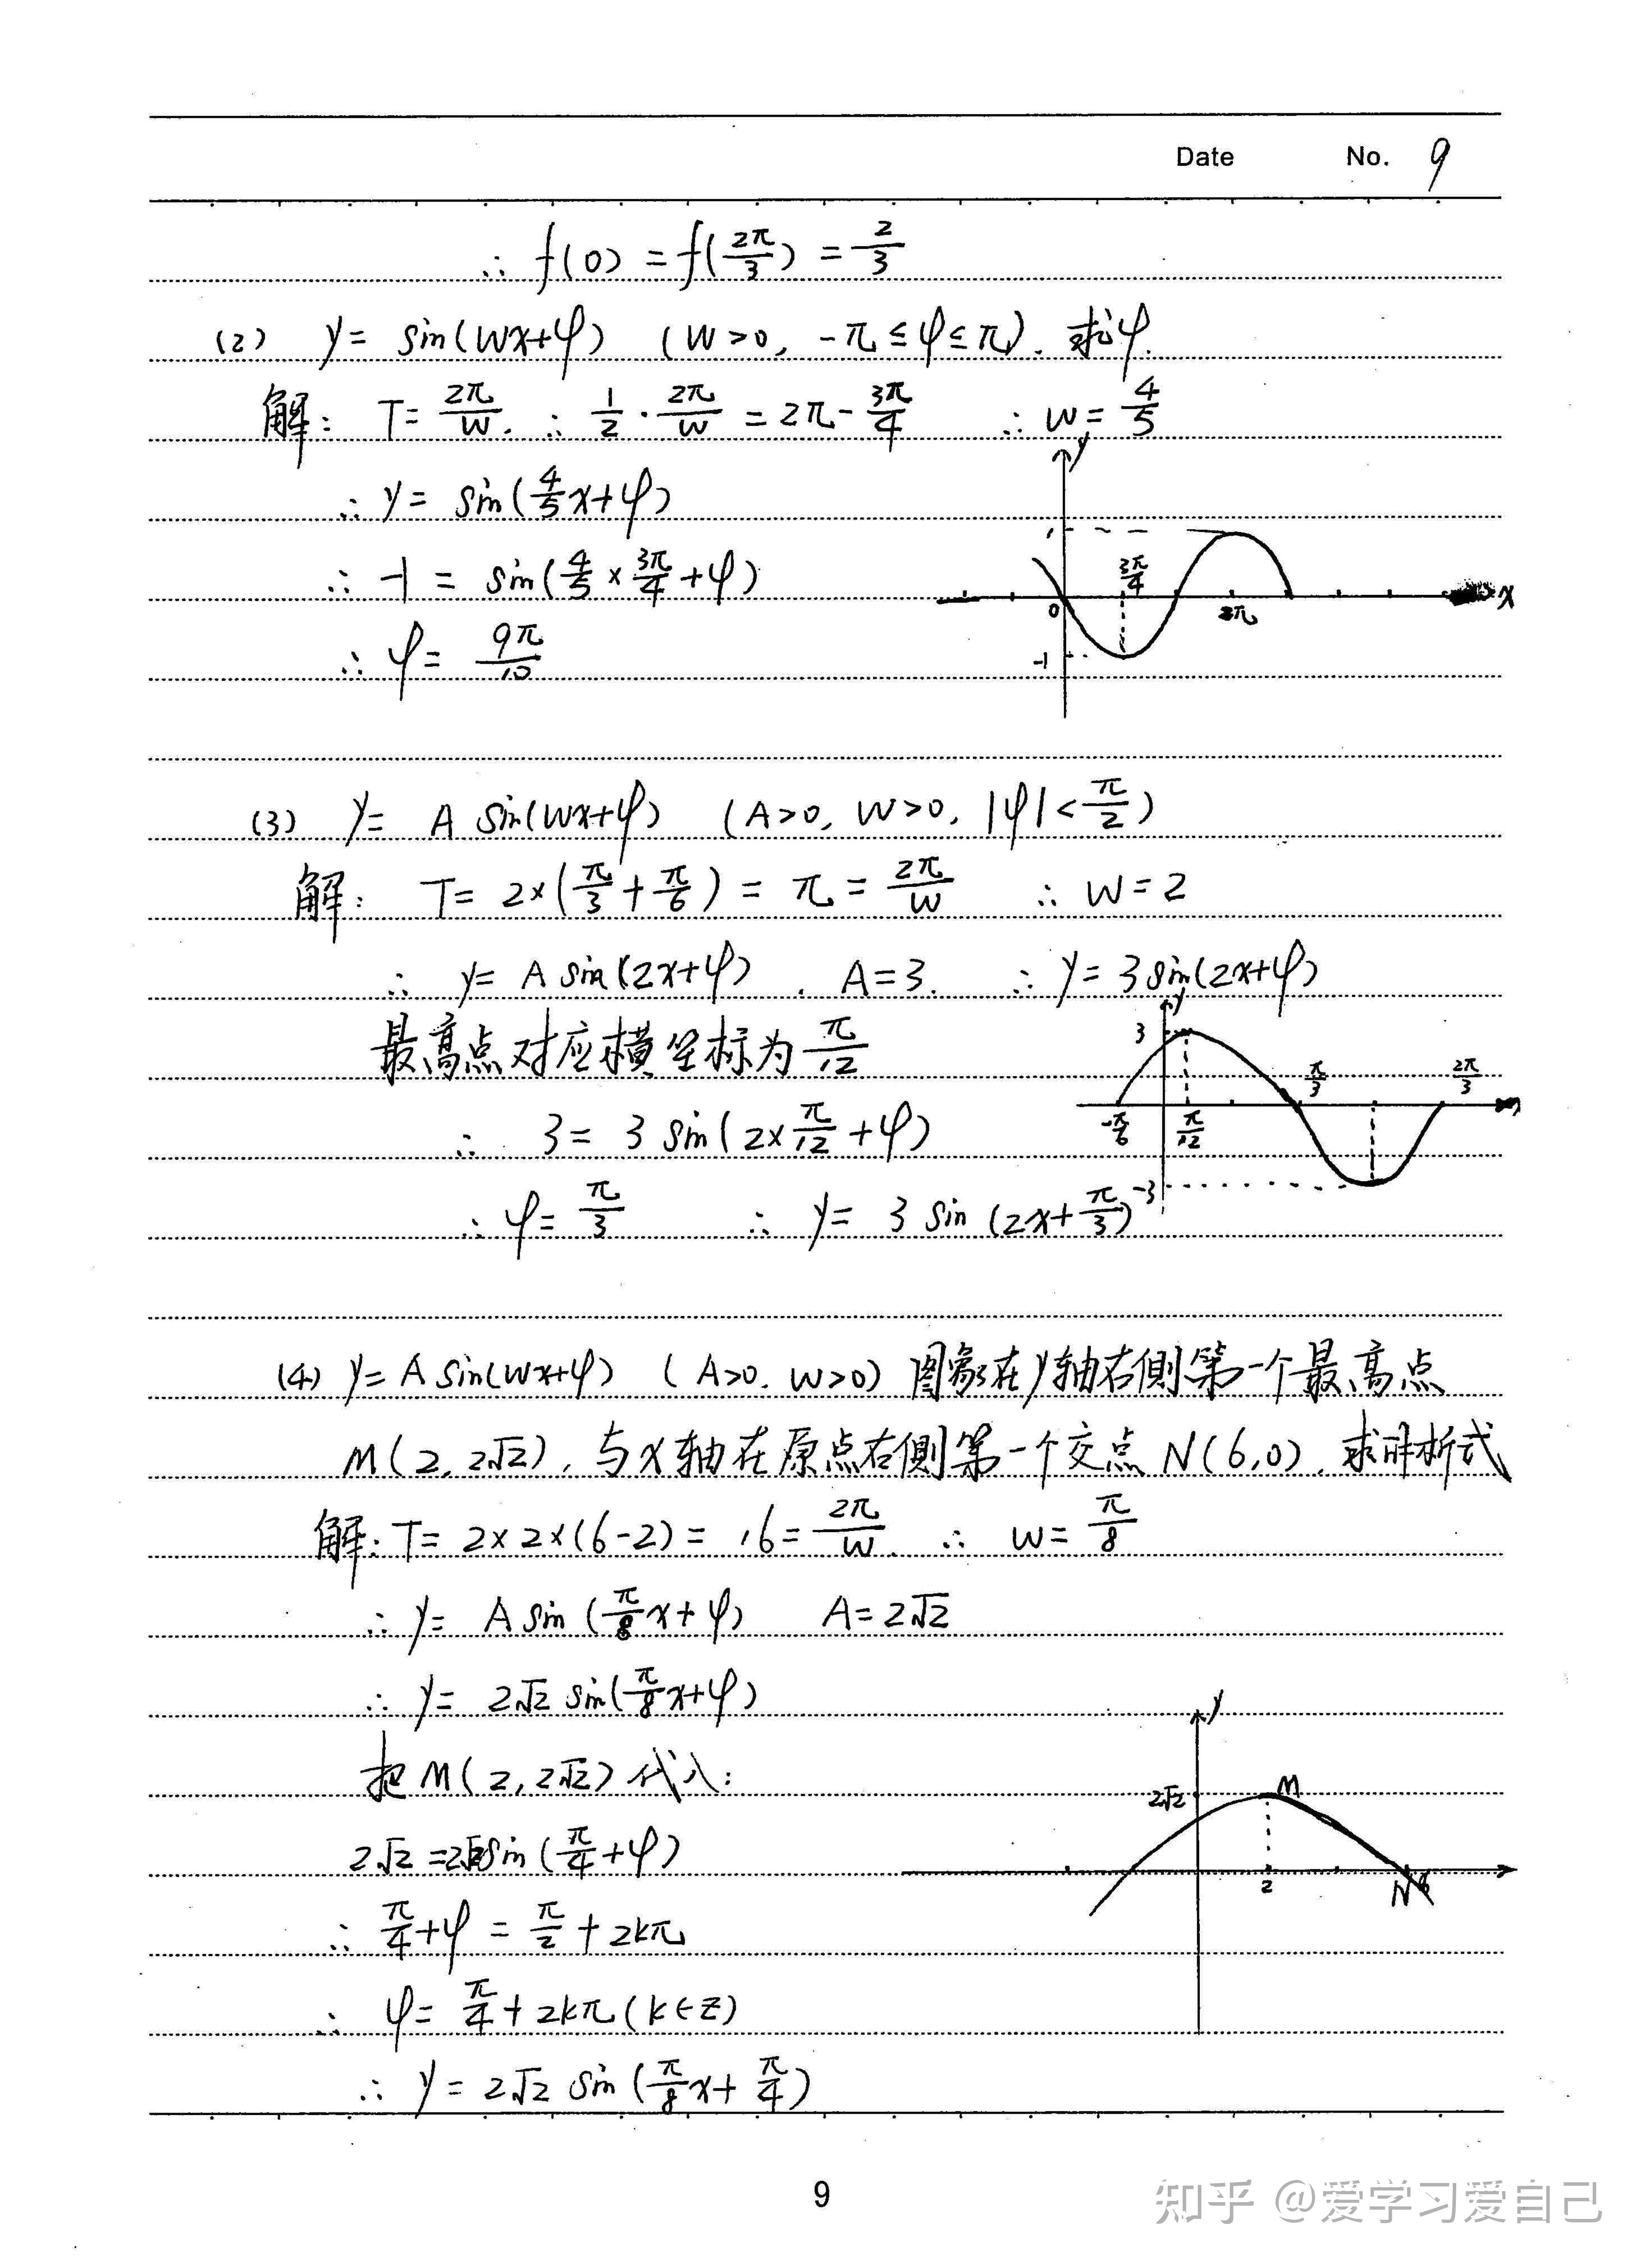 Date No. 9
∴ f(0) = f(2π/3) = 2/3
(2) y = sin(Wx+φ) (W>0, -π≤φ≤π). 求φ.
解: T= 2π/W. ∴ 1/2 · 2π/W = 2π - 3π/4 ∴ W = 4/5
∴ y = sin(4/5 x+φ)
∴ -1 = sin(4/5 × 3π/4 + φ)
∴ φ = 9π/10
y
1
3π/4
0
2π
x
-1
(3) y = A sin(Wx+φ) (A>0, W>0, |φ| < π/2)
解: T= 2×(π/3 + π/6) = π = 2π/W ∴ W = 2
∴ y = A sin(2x+φ). A=3. ∴ y = 3 sin(2x+φ)
最高点对应横坐标为 π/12
∴ 3 = 3 sin(2× π/12 + φ)
∴ φ = π/3 ∴ y = 3 sin(2x+ π/3)
y
3
π/3
2π/3
-π/6
π/12
-3
(4) y = A sin(Wx+φ) (A>0. W>0) 图象在y轴右側第一个最高点
M(2, 2√2), 与x轴在原点右側第一个交点 N(6,0), 求解析式
解: T= 2×2×(6-2) = 16 = 2π/W. ∴ W = π/8
∴ y = A sin(π/8 x+φ) A = 2√2
∴ y = 2√2 sin(π/8 x+φ)
把M(2, 2√2)代入:
2√2 = 2√2 sin(π/4 + φ)
∴ π/4 + φ = π/2 + 2kπ
∴ φ = π/4 + 2kπ (k∈Z)
∴ y = 2√2 sin(π/8 x+ π/4)
y
2√2
M
2
N 6
9
知乎 @爱学习爱自己